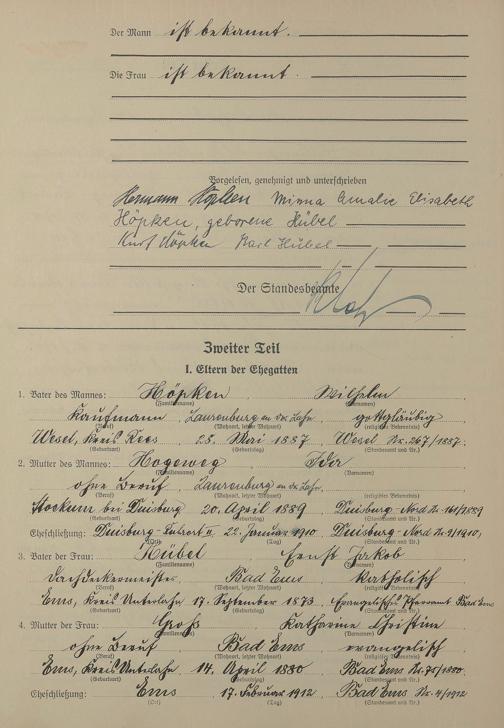 Der Mann ist bekannt.
Die Frau ist bekannt.
Vorgelesen, genehmigt und unterschrieben
Hermann Höpken Minna Amalie Elisabeth
Höpken, geborene Hübel
Kurt Höpken Karl Hübel
Der Standesbeamte
Zweiter Teil
I. Eltern der Ehegatten
1. Vater des Mannes: Höpken Wilhelm
(Familienname) (Vornamen)
Kaufmann Laurenburg an der Lahn gottgläubig
(Beruf) (Wohnort, letzter Wohnort) (religiöses Bekenntnis)
Wesel, Kreis Rees 25. Mai 1887 Wesel Nr. 267/1887.
(Geburtsort) (Geburtstag) (Standesamt und Nr.)
2. Mutter des Mannes: Hogeweg Ida
(Familienname) (Vornamen)
ohne Beruf Laurenburg an der Lahn
(Beruf) (Wohnort, letzter Wohnort) (religiöses Bekenntnis)
Stockum bei Duisburg 20. April 1889 Duisburg-Nord Nr. 161/1889
(Geburtsort) (Geburtstag) (Standesamt und Nr.)
Eheschließung: Duisburg-Ruhrort II 22. Januar 1910 Duisburg-Nord Nr. 9/1910,
(Ort) (Tag) (Standesamt und Nr.)
3. Vater der Frau: Hübel Ernst Jakob
(Familienname) (Vornamen)
Dachdeckermeister Bad Ems katholisch
(Beruf) (Wohnort, letzter Wohnort) (religiöses Bekenntnis)
Ems, Kreis Unterlahn 17. September 1873 Evangelisches Pfarramt Bad Ems
(Geburtsort) (Geburtstag) (Standesamt und Nr.)
4. Mutter der Frau: Groß Katharine Christine
(Familienname) (Vornamen)
ohne Beruf Bad Ems evangelisch
(Beruf) (Wohnort, letzter Wohnort) (religiöses Bekenntnis)
Ems, Kreis Unterlahn 14. April 1880 Bad Ems Nr. 75/1880.
(Geburtsort) (Geburtstag) (Standesamt und Nr.)
Eheschließung: Ems 17. Februar 1912 Bad Ems Nr. 4/1912
(Ort) (Tag) (Standesamt und Nr.)